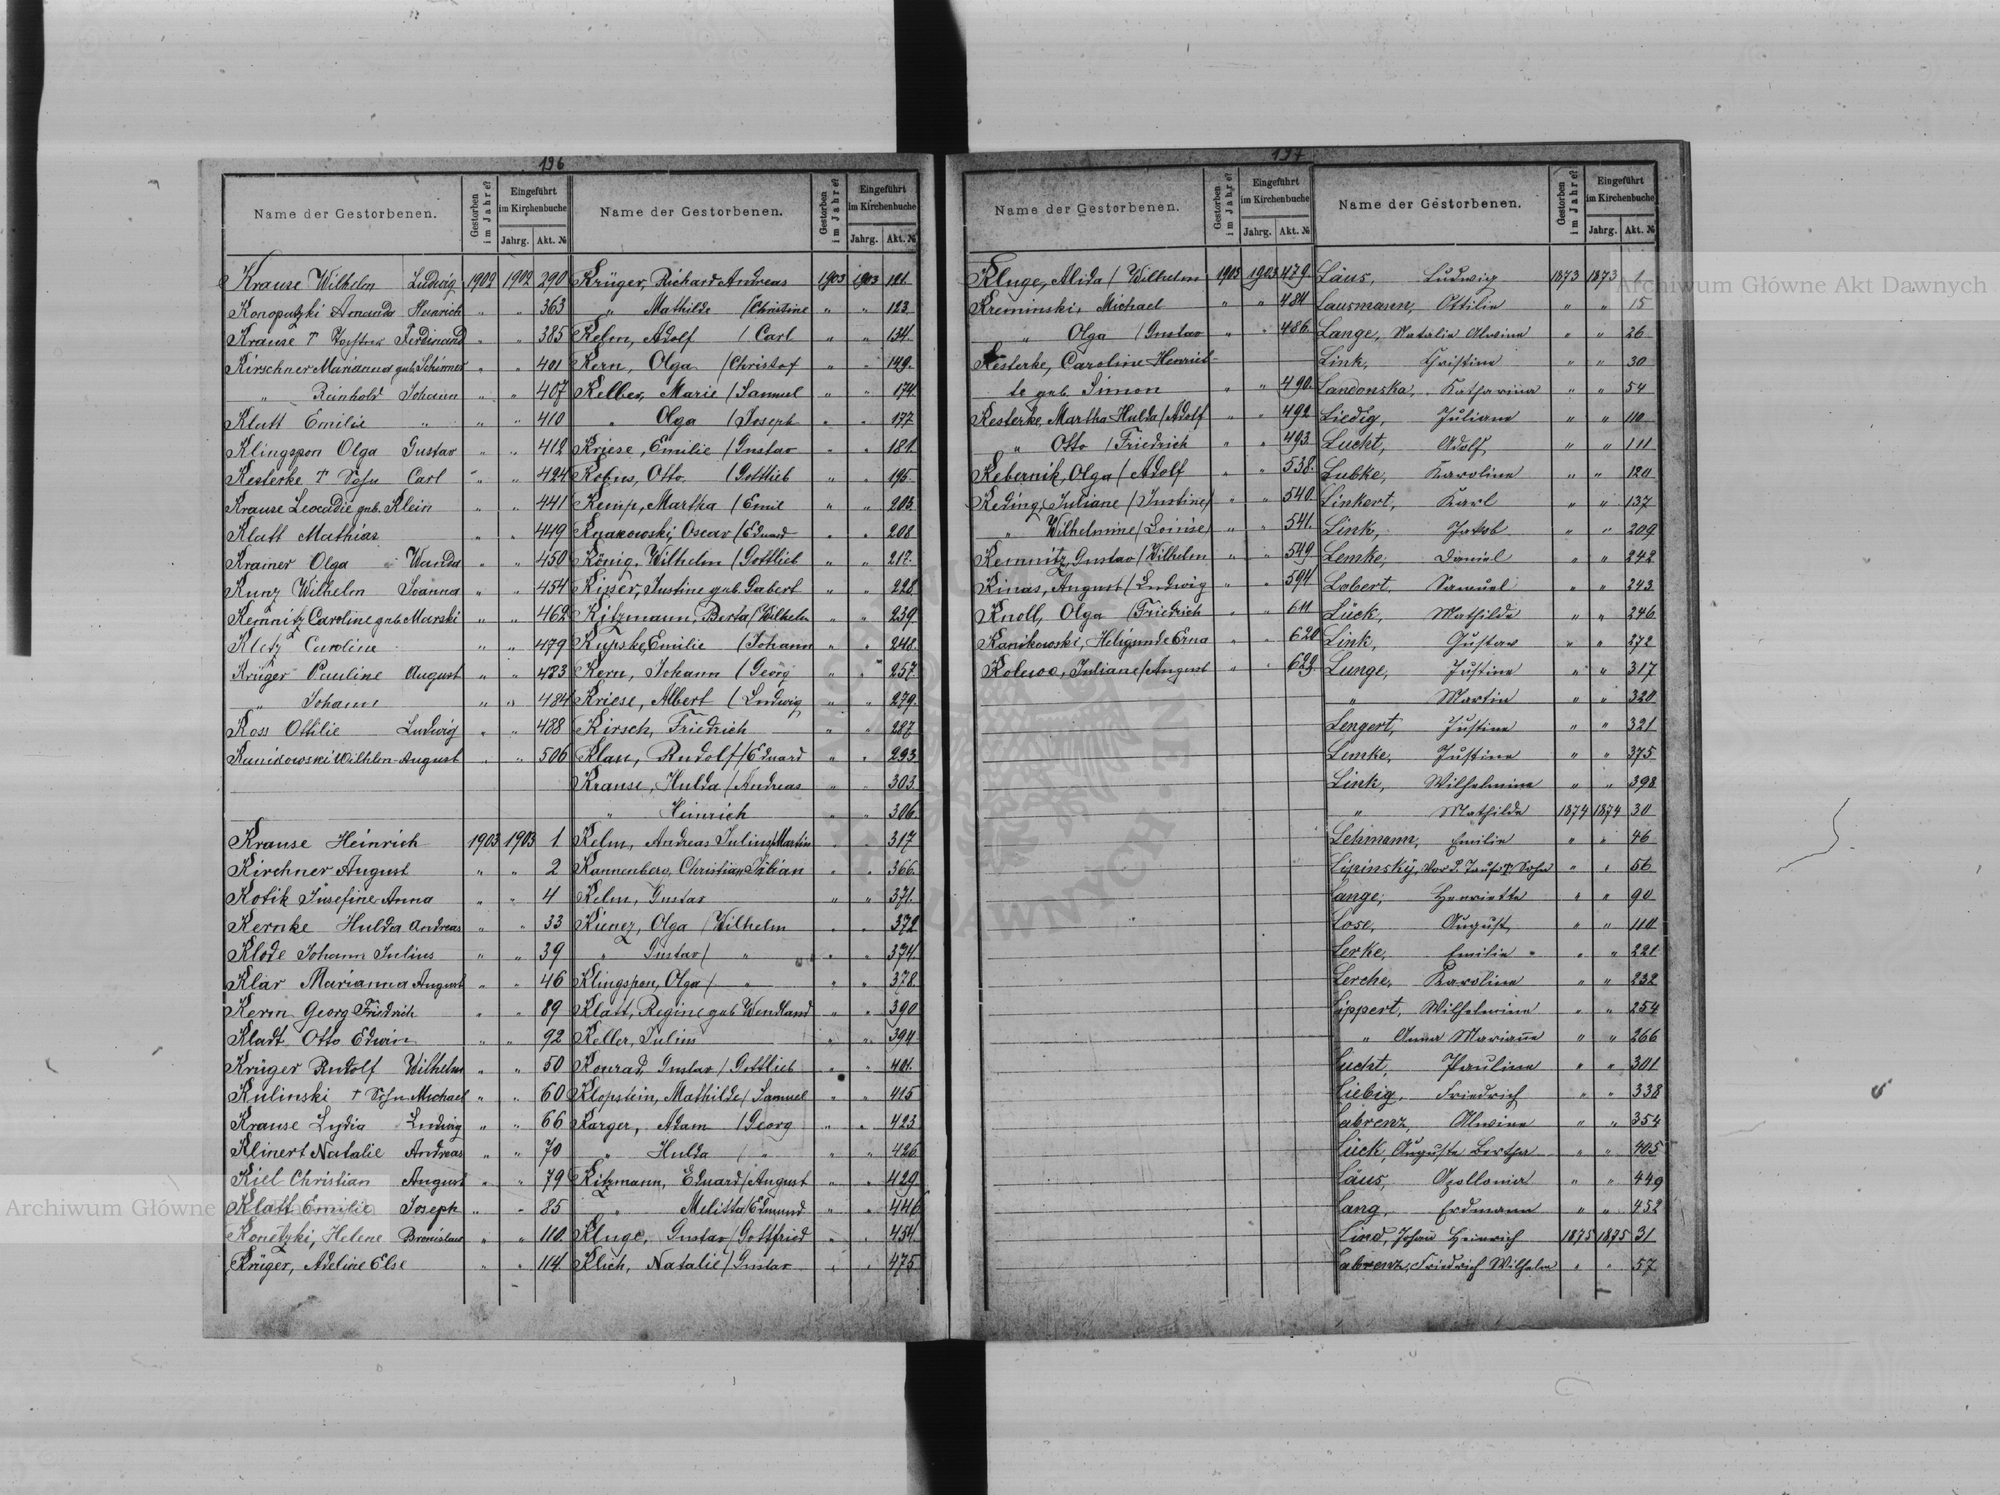 196
Name der Gestorbenen. Gestorben im Jahre? Eingeführt im Kirchenbuche Jahrg. Akt. №
Krause Wilhelm Ludwig 1902 1902 290
Konopatzki Amanda Heinrich " " 363
Krause † Tochter Ferdinand " " 385
Kirschner Marianna geb. Schirmer " " 401
" Reinhold Johann " " 407
Klatt Emilie " " " 410
Klingspon Olga Gustav " " 412
Kesterke † Sohn Carl " " 424
Krause Leocadie geb. Klein " " 441
Klatt Mathias " " 449
Kramer Olga Wanda " " 450
Kunz Wilhelm Joanna " " 454
Kemnitz Caroline geb. Marski " " 462
Kletz Caroline " " 479
Krüger Pauline August " " 483
" Johann " " 484
Koss Ottilie Ludwig " " 488
Kanikowski Wilhlm August " " 506
Krause Heinrich 1903 1903 1
Kirchner August " " 2
Kotik Josefine Anna " " 4
Kernke Hulda Andreas " " 33
Klode Johann Julius " " 39
Klar Marianna August " " 46
Kerm Georg Friedrich " " 89
Kladt Otto Edwin " " 92
Krüger Rudolf Wilhelm " " 50
Kulinski † Sohn Michael " " 60
Krause Lydia Ludwig " " 66
Klinert Natalie Andreas " " 70
Kiel Christian August " " 79
Klatt Emilie Joseph " " 85
Konetzki, Helene Bronislaw " " 110
Krüger, Adeline Else " " 114
Name der Gestorbenen. Gestorben im Jahre? Eingeführt im Kirchenbuche Jahrg. Akt. №
Krüger, Richard Andreas 1903 1903 121
" Mathilde /Christine " " 123
Kelm, Adolf / Carl " " 134
Kern, Olga /Christof " " 149
Keller, Marie /Samuel " " 174
" Olga /Joseph " " 177
Kriese, Emilie /Gustav " " 181
Kobus, Otto /Gottlieb " " 195
Kemp, Martha /Emil " " 203
Oscar /Eduard " " 208
König, Wilhelm /Gottlieb " " 217
Kiser, Justine geb. Gabert " " 228
Kitzmann, Berta /Wilhelm " " 239
Kupske, Emilie /Johann " " 248
Kern, Johann /Georg " " 257
Kriese, Albert /Ludwig " " 279
Kirsch, Friedrich " " 287
Klau, Rudolf /Eduard " " 293
Krause, Hulda /Andreas " " 303
" Heinrich " " 306
Kelm, Andreas Julius /Martin " " 317
Kannenberg, Christian Julian " " 366
Kelm, Gustav " " 371
Kienez, Olga /Wilhelm " " 372
" Gustav / " " " 374
Klingspon, Olga / " " " 378
Klatt, Regine geb. Wendland " " 390
Keller, Julius " " 394
Konrad, Gustav /Gottlieb " " 401
Klopstein, Mathilde /Samuel " " 415
Karger, Adam /Georg " " 423
" Hulda / " " " 426
Kitzmann, Eduard /August " " 429
" Melitta /Edmund " " 446
Kluge, Gustav /Gottfried " " 454
Klich, Natalie /Gustav " " 475
197
Name der Gestorbenen. Gestorben im Jahre? Eingeführt im Kirchenbuche Jahrg. Akt. №
Kluge, Alida / Wilhelm 1903 1903 479
Kreminski, Michael " " 484
" Olga /Gustav " " 486
Kesterke, Caroline Henriet-
te geb. Simon " " 490
Kesterke, Martha Hulda /Adolf " " 492
" Otto /Friedrich " " 493
Kebernik, Olga /Adolf " " 538
Keding, Juliane /Justine/ " " 540
" Wilhelmine /Loiise/ " " 541
Kemnitz, Gustav /Wilhelm " " 549
Kinas, August /Ludwig " " 594
Knoll, Olga /Friedrich " " 611
Kanikowski, Heligunde Erna " " 620
Juliane /August " " 622
Name der Gestorbenen. Gestorben im Jahre? Eingeführt im Kirchenbuche Jahrg. Akt. №
Läus, Ludwig 1873 1873 1
Lausmann, Ottilie " " 15
Lange, Natalie Alwine " " 26
Link, Christine " " 30
Landonska, Katharina " " 54
Liedig, Juliane " " 110
Lucht, Adolf " " 111
Lubke, Karoline " " 124
Linkert, Karl " " 137
Link, Jakob " " 209
Lemke, Daniel " " 242
Lobert, Samuel " " 243
Lück, Mathilde " " 246
Link, Gustav " " 272
Lunge, Justine " " 317
" Martin " " 320
Lengert, Justine " " 321
Lemke, Justine " " 375
Link, Wilhelmine " " 398
" Mathilde 1874 1874 30
Lehmann, Emilie " " 46
Lipinsky, vor d. Taufe † Sohn " " 56
Lange, Henriette " " 90
Lose, August " " 110
Lerke, Emilie " " 221
Lerche, Karoline " " 232
Lippert, Wilhelmine " " 254
" Anna Mariane " " 266
Lucht, Pauline " " 301
Liebig, Friedrich " " 338
Labrenz, Alwine " " 354
Lück, Auguste Bertha " " 405
Läus, Apollonia " " 449
Lang, Erdmann " " 452
Lind, Johan Heinrich 1875 1875 31
Labrenz, Friedrich Wilhelm " " 57
Archiwum Główne Akt Dawnych
Archiwum Główne
DAWNYCH